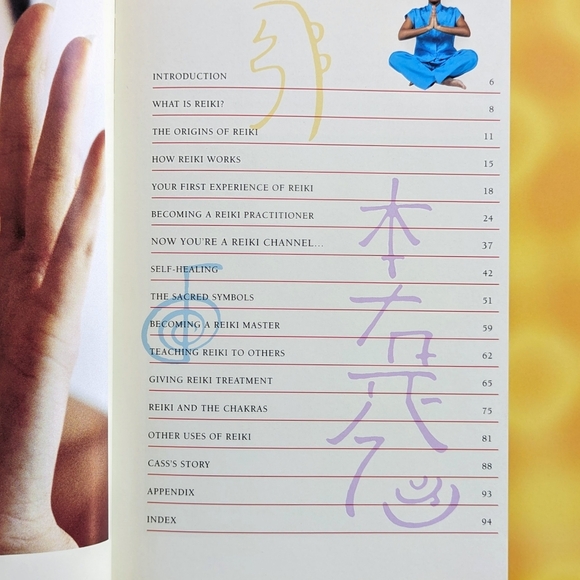 INTRODUCTION 6
WHAT IS REIKI? 8
THE ORIGINS OF REIKI 11
HOW REIKI WORKS 15
YOUR FIRST EXPERIENCE OF REIKI 18
BECOMING A REIKI PRACTITIONER 24
NOW YOU'RE A REIKI CHANNEL... 37
SELF-HEALING 42
THE SACRED SYMBOLS 51
BECOMING A REIKI MASTER 59
TEACHING REIKI TO OTHERS 62
GIVING REIKI TREATMENT 65
REIKI AND THE CHAKRAS 75
OTHER USES OF REIKI 81
CASS'S STORY 88
APPENDIX 93
INDEX 94